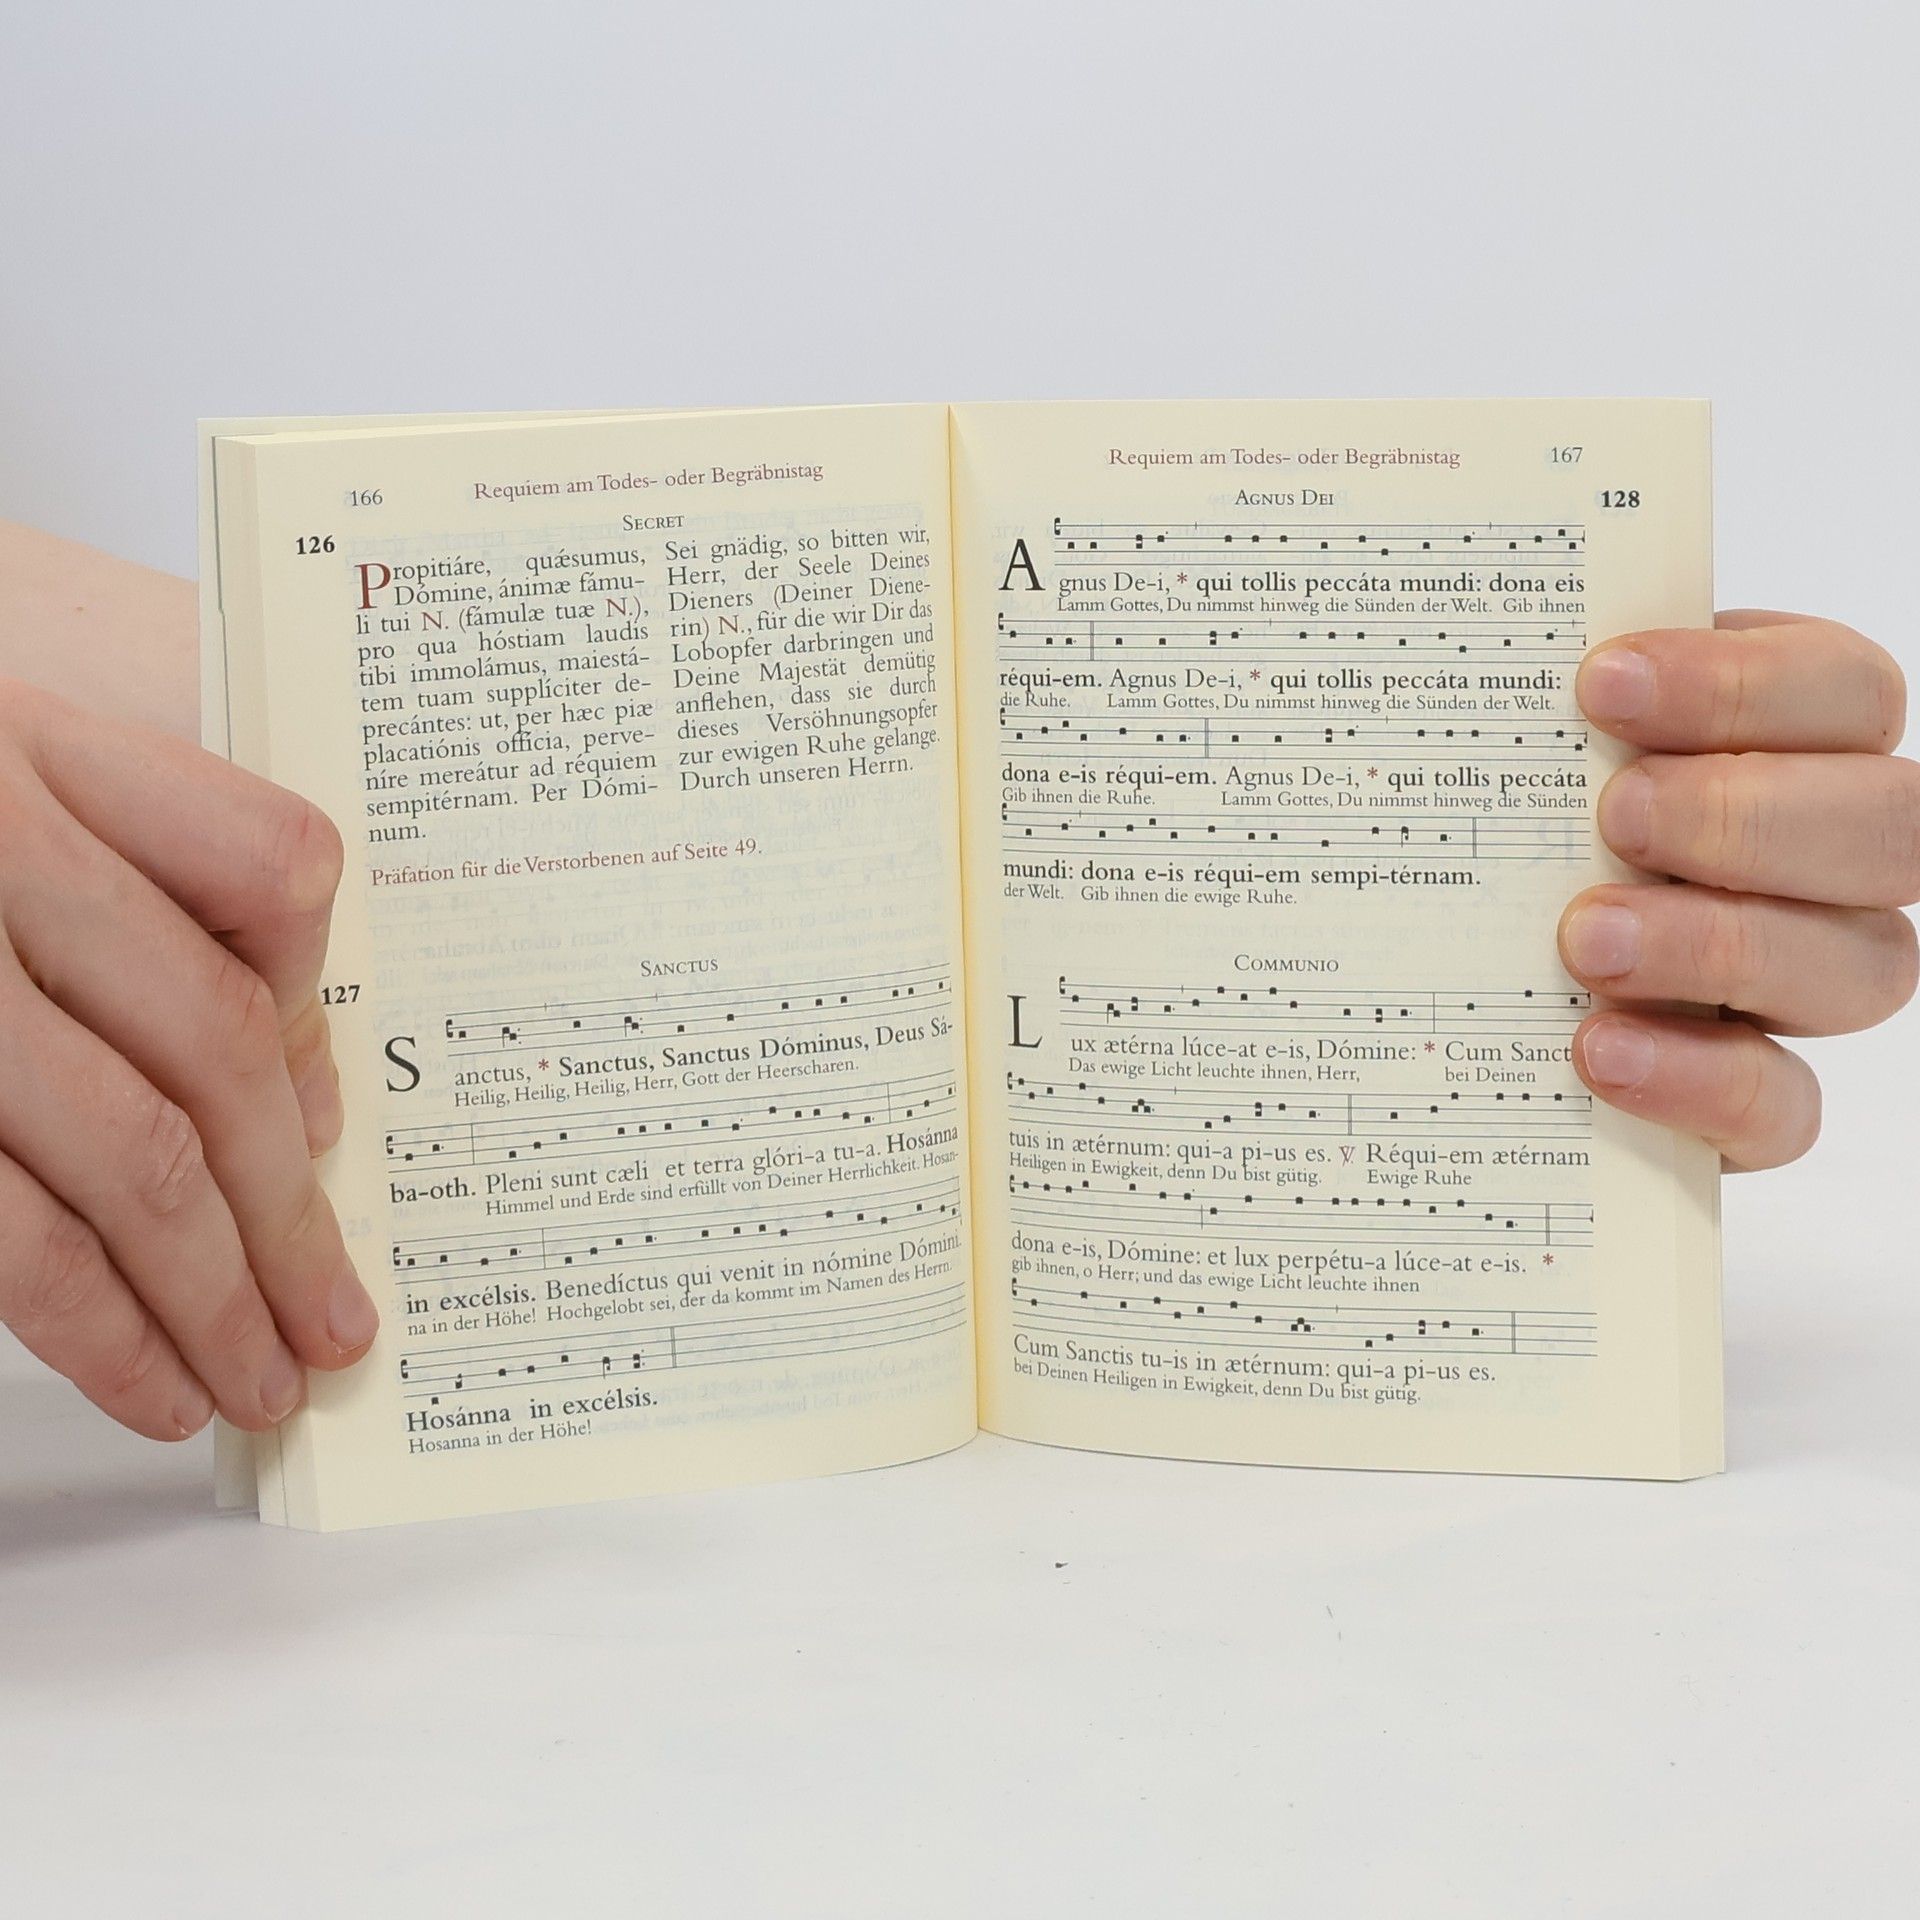 166 Requiem am Todes- oder Begräbnistag
Secret
126
Propitiáre, quǽsumus,
Dómine, ánimæ fámu-
li tui N. (fámulæ tuæ N.),
pro qua hóstiam laudis
tibi immolámus, maiestá-
tem tuam supplíciter de-
precántes: ut, per hæc piæ
placatiónis offícia, perve-
níre mereátur ad réquiem
sempitérnam. Per Dómi-
num.
Sei gnädig, so bitten wir,
Herr, der Seele Deines
Dieners (Deiner Diene-
rin) N., für die wir Dir das
Lobopfer darbringen und
Deine Majestät demütig
anflehen, dass sie durch
dieses Versöhnungsopfer
zur ewigen Ruhe gelange.
Durch unseren Herrn.
Präfation für die Verstorbenen auf Seite 49.
Sanctus
127
Sanctus, * Sanctus, Sanctus Dóminus, Deus Sá-
Heilig, Heilig, Heilig, Herr, Gott der Heerscharen.
ba-oth. Pleni sunt cæli et terra glóri-a tu-a. Hosánna
Himmel und Erde sind erfüllt von Deiner Herrlichkeit. Hosan-
in excélsis. Benedíctus qui venit in nómine Dómini.
na in der Höhe! Hochgelobt sei, der da kommt im Namen des Herrn.
Hosánna in excélsis.
Hosanna in der Höhe!
Requiem am Todes- oder Begräbnistag 167
Agnus Dei
128
Agnus De-i, * qui tollis peccáta mundi: dona eis
Lamm Gottes, Du nimmst hinweg die Sünden der Welt. Gib ihnen
réqui-em. Agnus De-i, * qui tollis peccáta mundi:
die Ruhe. Lamm Gottes, Du nimmst hinweg die Sünden der Welt.
dona e-is réqui-em. Agnus De-i, * qui tollis peccáta
Gib ihnen die Ruhe. Lamm Gottes, Du nimmst hinweg die Sünden
mundi: dona e-is réqui-em sempi-térnam.
der Welt. Gib ihnen die ewige Ruhe.
Communio
Lux ætérna lúce-at e-is, Dómine: * Cum Sanct
Das ewige Licht leuchte ihnen, Herr, bei Deinen
tuis in ætérnum: qui-a pi-us es. ℣. Réqui-em ætérnam
Heiligen in Ewigkeit, denn Du bist gütig. Ewige Ruhe
dona e-is, Dómine: et lux perpétu-a lúce-at e-is. *
gib ihnen, o Herr; und das ewige Licht leuchte ihnen
Cum Sanctis tu-is in ætérnum: qui-a pi-us es.
bei Deinen Heiligen in Ewigkeit, denn Du bist gütig.